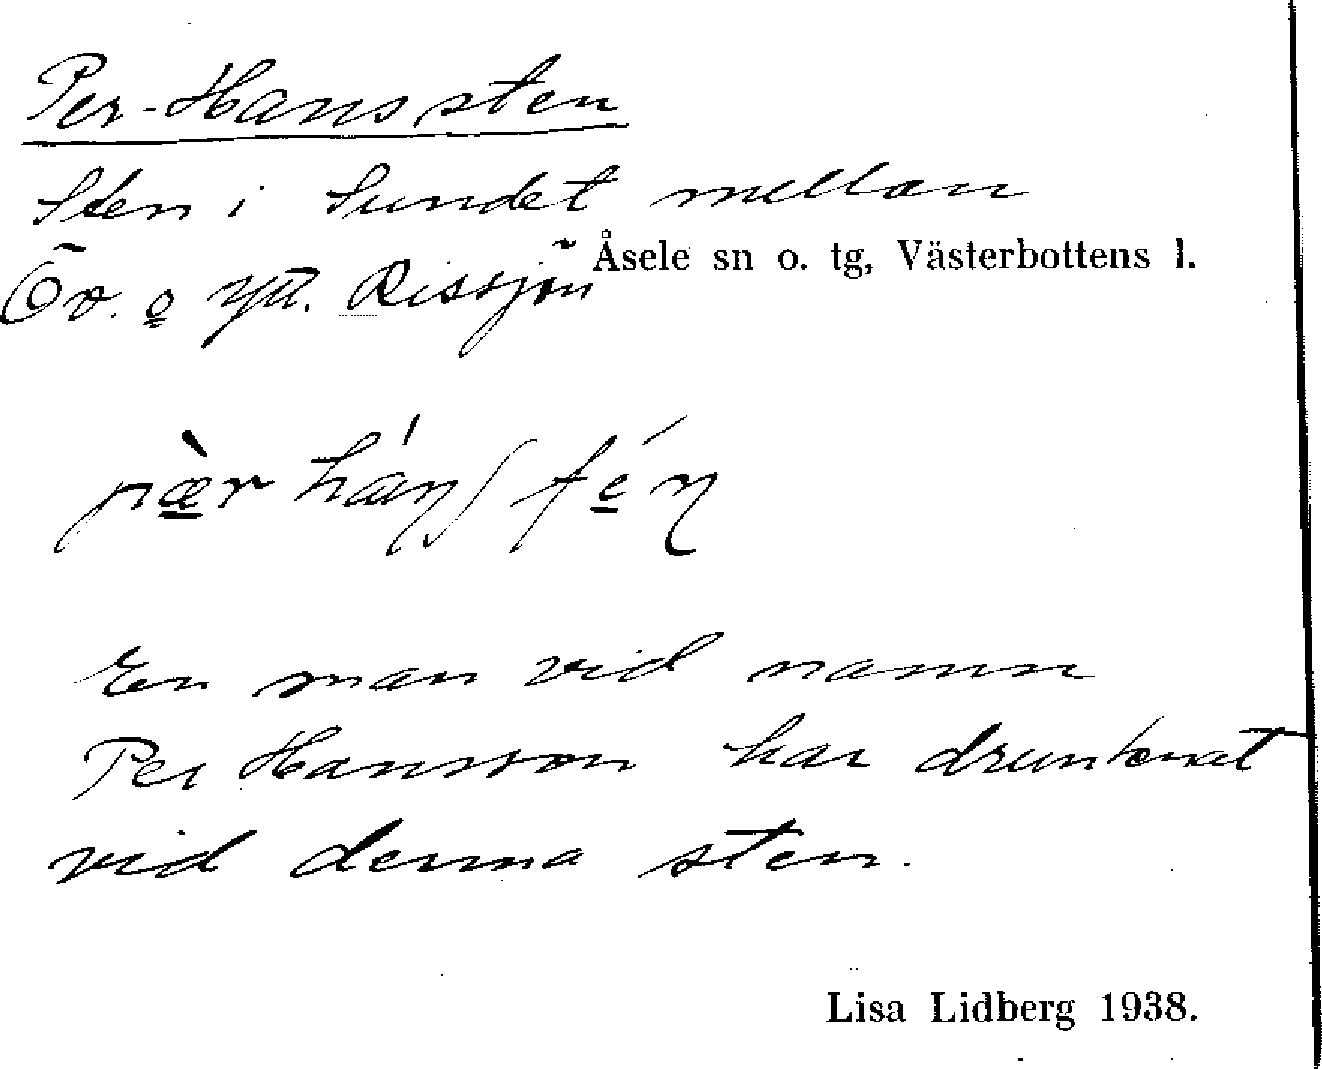 Per-Hanssten
Sten i Sundet mellan
Åsele sn o. tg, Västerbottens l.
Öv. o ytt. Rissjön
En man vid namn
Per Hansson har drunknat
vid denna sten.
Lisa Lidberg 1938.